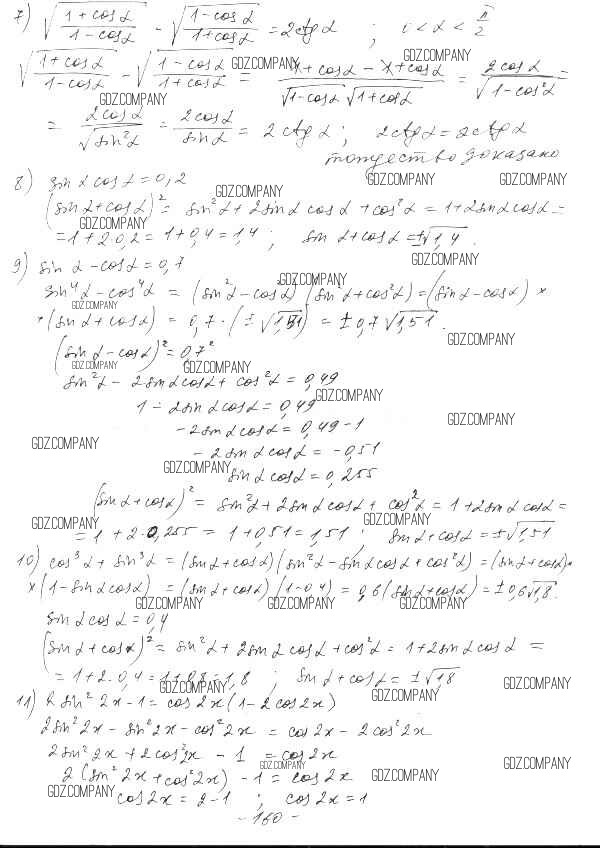 7) √((1+cosα)/(1-cosα)) - √((1-cosα)/(1+cosα)) = 2ctgα ; 0<α<π/2
√((1+cosα)/(1-cosα)) - √((1-cosα)/(1+cosα)) = (1+cosα-1+cosα)/(√(1-cosα)√(1+cosα)) = 2cosα/√(1-cos²α) =
GDZ.COMPANY GDZ.COMPANY GDZ.COMPANY
= 2cosα/√(sin²α) = 2cosα/sinα = 2ctgα ; 2ctgα=2ctgα
тождество доказано
8) sinα cosα=0,2
GDZ.COMPANY GDZ.COMPANY GDZ.COMPANY
(sinα+cosα)² = sin²α+2sinα cosα+cos²α = 1+2sinα cosα =
GDZ.COMPANY
= 1+2·0,2 = 1+0,4 = 1,4 ; sinα+cosα=±√1,4.
GDZ.COMPANY
9) sinα-cosα=0,7
sin⁴α-cos⁴α = (sin²α-cos²α)(sin²α+cos²α)=(sinα-cosα)×
GDZ.COMPANY GDZ.COMPANY
×(sinα+cosα) = 0,7·(±√1,51) = ±0,7√1,51.
GDZ.COMPANY
(sinα-cosα)²=0,7²
GDZ.COMPANY GDZ.COMPANY
sin²α-2sinαcosα+cos²α=0,49
GDZ.COMPANY
1-2sinαcosα=0,49
-2sinαcosα=0,49-1
GDZ.COMPANY GDZ.COMPANY
-2sinαcosα=-0,51
GDZ.COMPANY
sinαcosα=0,255
(sinα+cosα)² = sin²α+2sinαcosα+cos²α=1+2sinαcosα=
GDZ.COMPANY GDZ.COMPANY
= 1+2·0,255 = 1+0,51=1,51 ; sinα+cosα=±√1,51
10) cos³α+sin³α=(sinα+cosα)(sin²α-sinαcosα+cos²α)=(sinα+cosα)×
×(1-sinαcosα) = (sinα+cosα)(1-0,4)=0,6(sinα+cosα)=±0,6√1,8.
GDZ.COMPANY GDZ.COMPANY GDZ.COMPANY
sinαcosα=0,4
(sinα+cosα)²=sin²α+2sinαcosα+cos²α=1+2sinαcosα =
= 1+2·0,4=1+0,8=1,8 ; sinα+cosα=±√18
GDZ.COMPANY GDZ.COMPANY GDZ.COMPANY
11) 2sin²2x-1=cos2x(1-2cos2x)
2sin²2x-sin²2x-cos²2x = cos2x-2cos²2x
2sin²2x+2cos²2x-1=cos2x
GDZ.COMPANY GDZ.COMPANY
2(sin²2x+cos²2x)-1=cos2x
GDZ.COMPANY GDZ.COMPANY
cos2x=2-1 ; cos2x=1
-160-